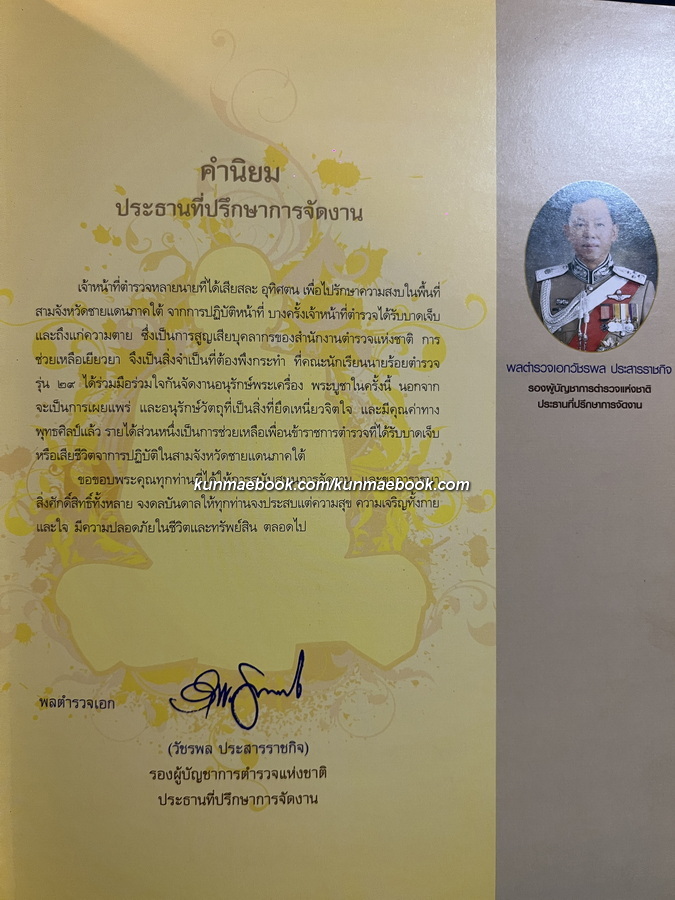 คำนิยม
ประธานที่ปรึกษาการจัดงาน
เจ้าหน้าที่ตำรวจหลายนายที่ได้เสียสละ อุทิศตน เพื่อไปรักษาความสงบในพื้นที่
สามจังหวัดชายแดนภาคใต้ จากการปฏิบัติหน้าที่ บางครั้งเจ้าหน้าที่ตำรวจได้รับบาดเจ็บ
และถึงแก่ความตาย ซึ่งเป็นการสูญเสียบุคลากรของสำนักงานตำรวจแห่งชาติ การ
ช่วยเหลือเยียวยา จึงเป็นสิ่งจำเป็นที่ต้องพึงกระทำ ที่คณะนักเรียนนายร้อยตำรวจ
รุ่น ๒๙ ได้ร่วมมือร่วมใจกันจัดงานอนุรักษ์พระเครื่อง พระบูชาในครั้งนี้ นอกจาก
จะเป็นการเผยแพร่ และอนุรักษ์วัตถุที่เป็นสิ่งที่ยึดเหนี่ยวจิตใจ และมีคุณค่าทาง
พุทธศิลป์แล้ว รายได้ส่วนหนึ่งเป็นการช่วยเหลือเพื่อนข้าราชการตำรวจที่ได้รับบาดเจ็บ
หรือเสียชีวิตจาการปฏิบัติในสามจังหวัดชายแดนภาคใต้
ขอขอบพระคุณทุกท่านที่ได้ให้การสนับสนุนการจัดงาน
kunmaebook.com/kunmaebook.com
สิ่งศักดิ์สิทธิ์ทั้งหลาย จงดลบันดาลให้ทุกท่านจงประสบแต่ความสุข ความเจริญทั้งกาย
และใจ มีความปลอดภัยในชีวิตและทรัพย์สิน ตลอดไป
พลตำรวจเอก
(วัชรพล ประสารราชกิจ)
รองผู้บัญชาการตำรวจแห่งชาติ
ประธานที่ปรึกษาการจัดงาน
พลตำรวจเอกวัชรพล ประสารราชกิจ
รองผู้บัญชาการตำรวจแห่งชาติ
ประธานที่ปรึกษาการจัดงาน